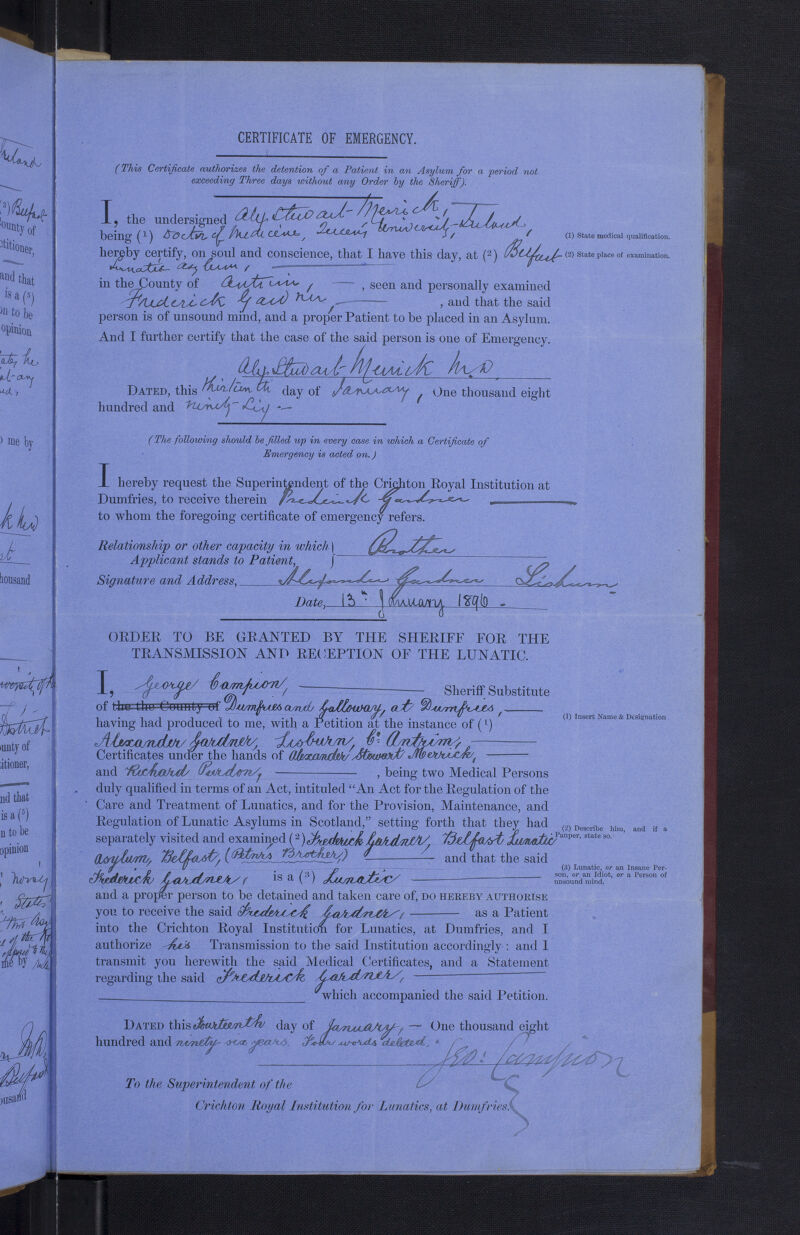 CERTIFICATE OF EMERGENCY.
(This Certificate authorizes the detention of a Patient in an Asylum for a period not
exceeding Three days without any Order by the Sheriff).
I, the undersigned Alex. Stewart Merrick,
being (1) Doctor of Medicine, Queens University, Ireland,
(1) State medical qualification.
hereby certify, on soul and conscience, that I have this day, at (2) Belfast
(2) State place of examination.
Lunatic asylum,
in the County of Antrim, , seen and personally examined
Frederick Gardner, , and that the said
person is of unsound mind, and a proper Patient to be placed in an Asylum.
And I further certify that the case of the said person is one of Emergency.
Alex. Stewart Merrick M.D.
DATED, this thirteenth day of January, One thousand eight
hundred and ninety six
(The following should be filled up in every case in which a Certificate of
Emergency is acted on.)
I hereby request the Superintendent of the Crichton Royal Institution at
Dumfries, to receive therein Frederick Gardner
to whom the foregoing certificate of emergency refers.
Relationship or other capacity in which
Applicant stands to Patient, } Brother
Signature and Address, Alexander Gardner Lisburn
Date, 13th January 1896.
ORDER TO BE GRANTED BY THE SHERIFF FOR THE
TRANSMISSION AND RECEPTION OF THE LUNATIC.
I, George Campion, Sheriff Substitute
of the the County of Dumfries and Galloway, at Dumfries,
having had produced to me, with a Petition at the instance of (1)
(1) Insert Name & Designation
Alexander Gardner, Lisburn, Co. Antrim,
Certificates under the hands of Alexander Stewart Merrick,
and Richard Purdon, , being two Medical Persons
duly qualified in terms of an Act, intituled "An Act for the Regulation of the
Care and Treatment of Lunatics, and for the Provision, Maintenance, and
Regulation of Lunatic Asylums in Scotland," setting forth that they had
separately visited and examined (2) Frederick Gardner, Belfast Lunatic
(2) Describe him, and if a
Pauper, state so.
Asylum, Belfast, (Petnrs Brother,) and that the said
Frederick Gardner, is a (3) Lunatic
(3) Lunatic, or an Insane Per-
son, or an Idiot, or a Person of
unsound mind.
and a proper person to be detained and taken care of, DO HEREBY AUTHORISE
you to receive the said Frederick Gardner, as a Patient
into the Crichton Royal Institution for Lunatics, at Dumfries, and I
authorize his Transmission to the said Institution accordingly: and I
transmit you herewith the said Medical Certificates, and a Statement
regarding the said Frederick Gardner,
which accompanied the said Petition.
DATED this Fourteenth day of January, One thousand eight
hundred and ninety six years. Four words deleted.
Geo: Campion
To the Superintendent of the
Crichton Royal Institution for Lunatics, at Dumfries.